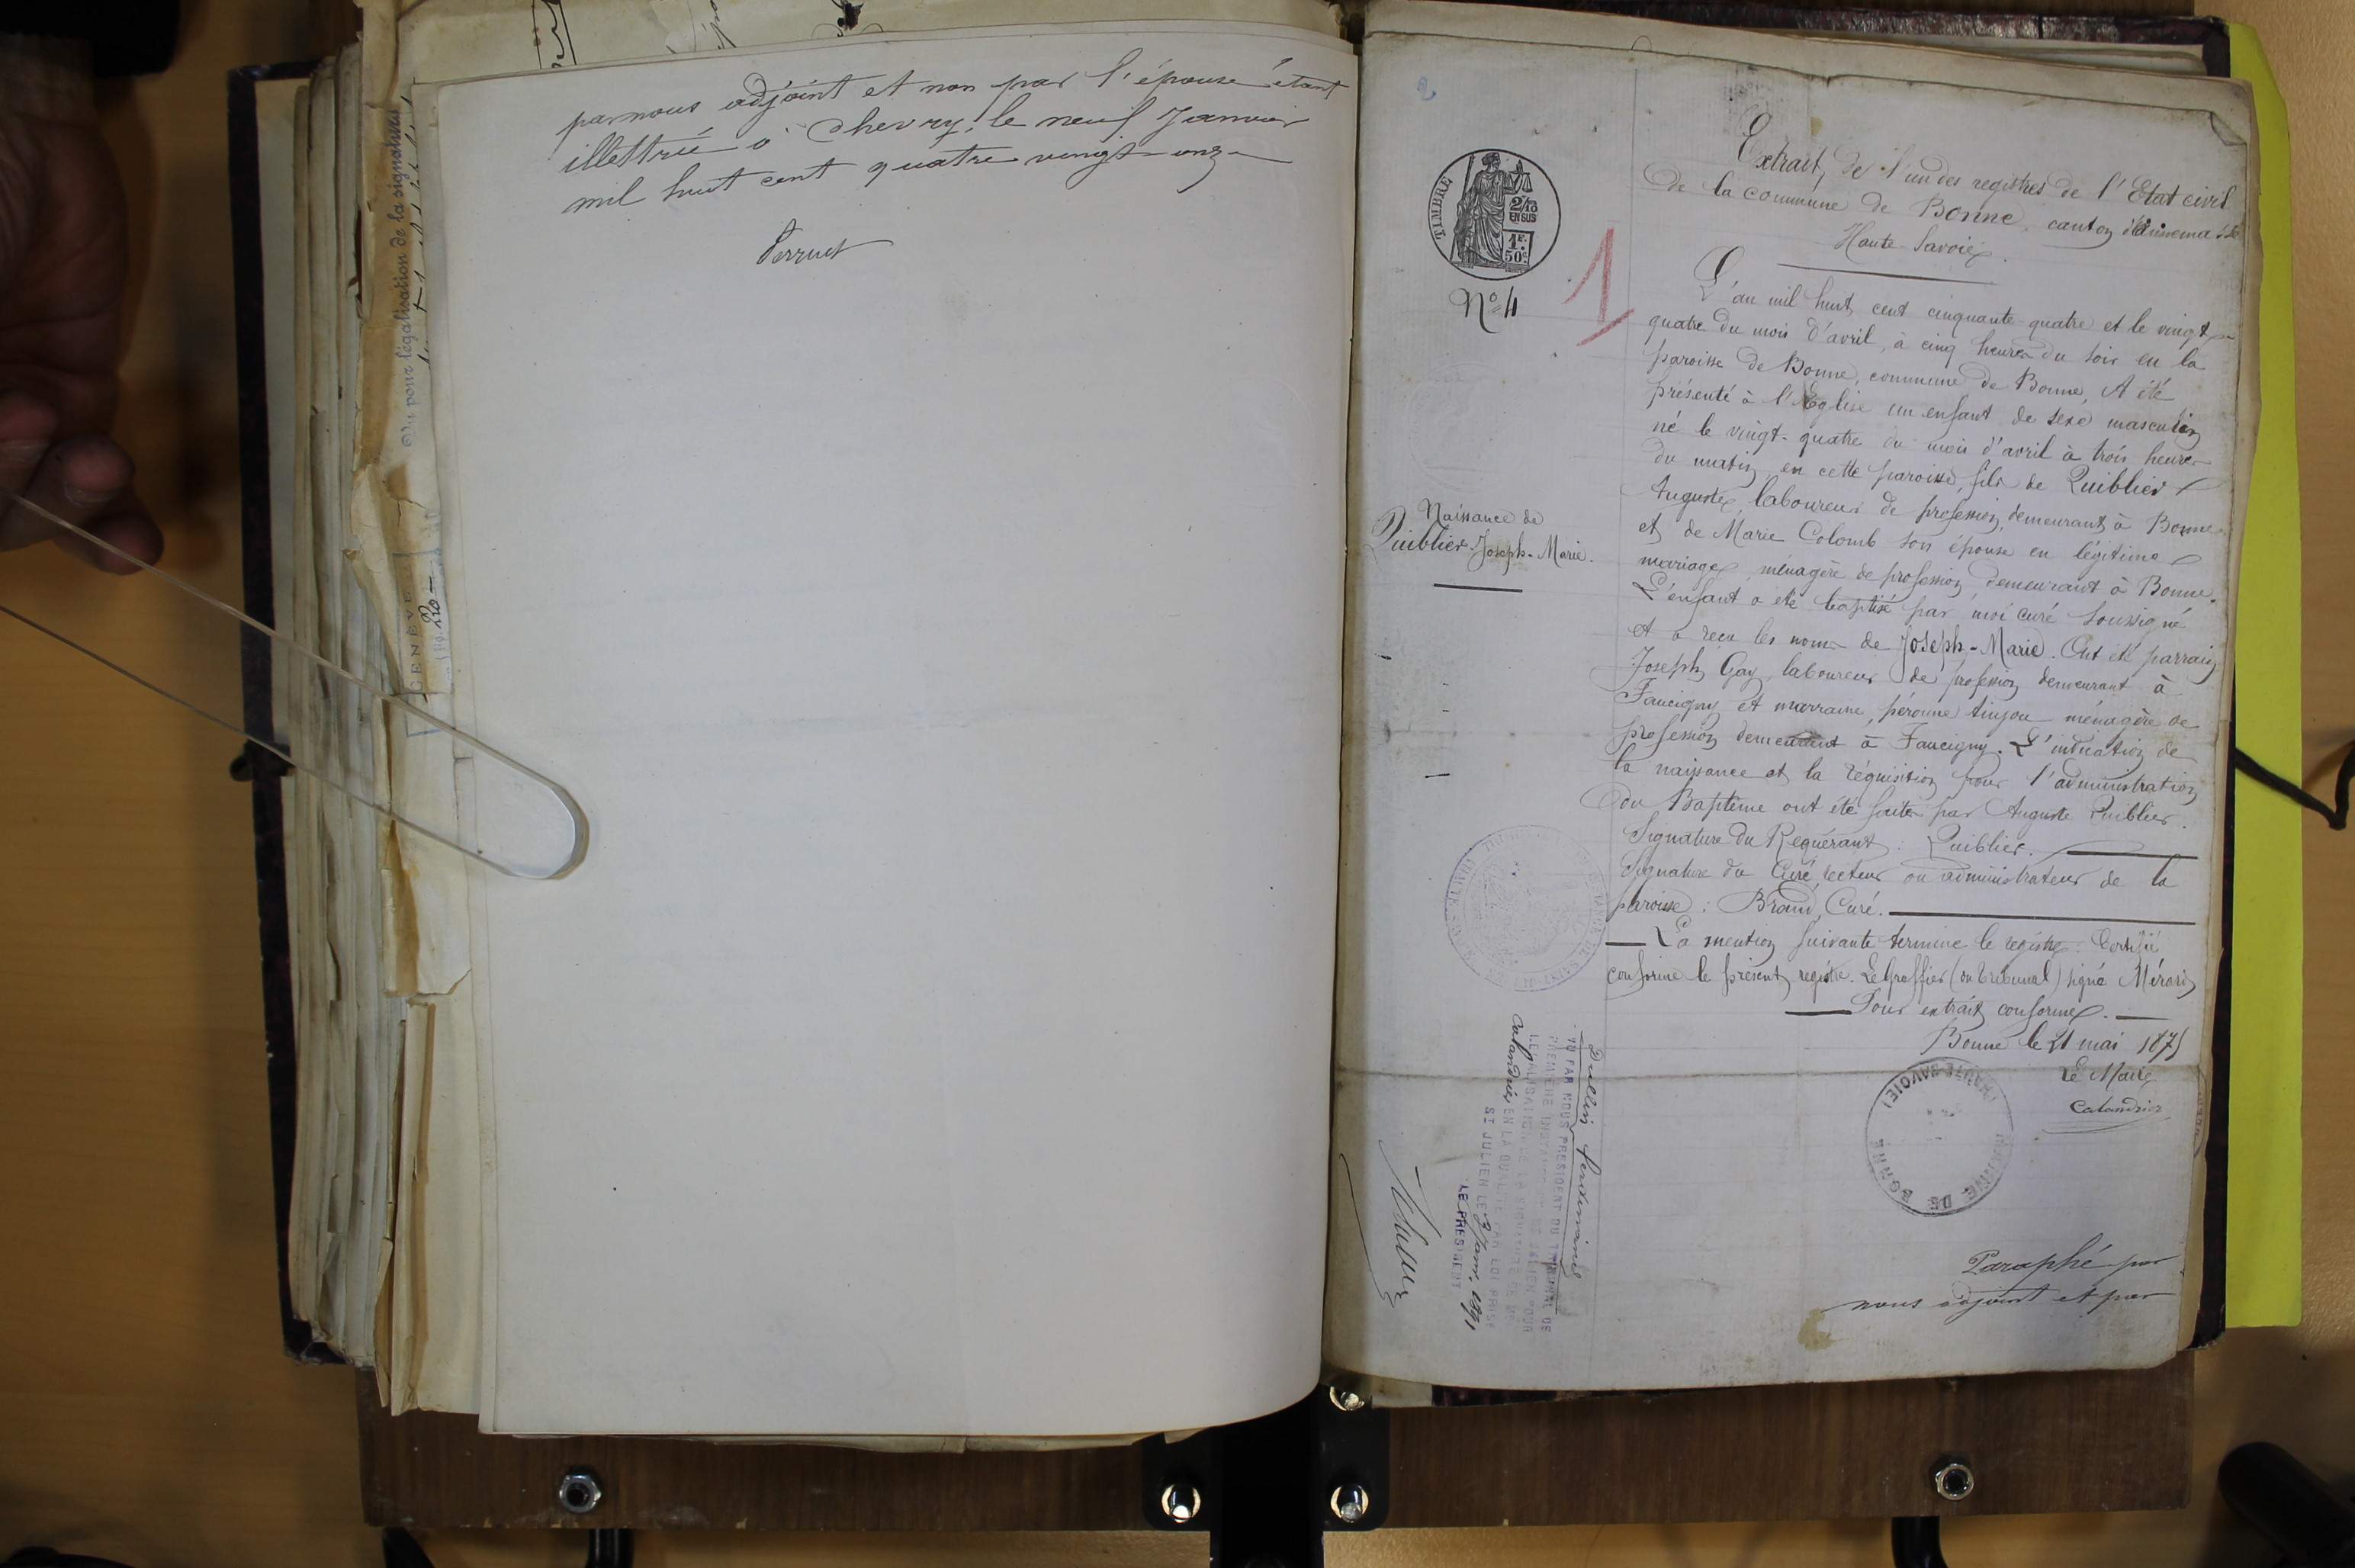 par nous adjoint et non par l'épouse étant
illettrée à Chevry, le neuf Janvier
mil huit cent quatre vingt-onze
Perruet
Vu pour légalisation de la signature
GENÈVE
20
2
TIMBRE
2/10
EN SUS
1F
50c
N° 4
1
Extrait de l'un des registres de l'Etat civil
de la commune de Bonne, canton d'Annemasse
Haute-Savoie.
L'an mil huit cent cinquante-quatre et le vingt
quatre du mois d'avril, à cinq heures du soir en la
paroisse de Bonne, commune de Bonne, A été
présenté à l'Eglise un enfant de sexe masculin
né le vingt-quatre du mois d'avril à trois heures
du matin en cette paroisse, fils de Quiblier
Auguste, laboureur de profession, demeurant à Bonne
et de Marie Colomb son épouse en légitime
mariage, ménagère de profession demeurant à Bonne.
L'enfant a été baptisé par moi curé soussigné
et a reçu les noms de Joseph-Marie. Ont été parrain
Joseph Gay, laboureur de profession demeurant à
Faucigny et marraine, péronne ménagère de
profession demeurant à Faucigny. L'indication de
la naissance et la réquisition pour l'administration
du Baptême ont été faites par Auguste Quiblier.
Signature du Requérant : Quiblier.
Signature du Curé, recteur ou administrateur de la
paroisse : Brand, Curé.
La mention suivante termine le registre : Certifié
conforme le présent registre. Le Greffier (du tribunal) signé
Pour extrait conforme.
Bonne le 21 mai 1875
Le Maire
Calandrier
Naissance de
Quiblier Joseph-Marie.
MAIRIE DE BONNE
(HAUTE SAVOIE)
VU PAR NOUS PRESIDENT DU TRIBUNAL DE
PREMIERE INSTANCE DE ST JULIEN POUR
LEGALISATION DE LA SIGNATURE DE Mr
Calandrier EN LA QUALITE PAR LUI PRISE
ST JULIEN LE 3 Janv. 1891
LE PRESIDENT
Paraphé par
nous adjoint et par